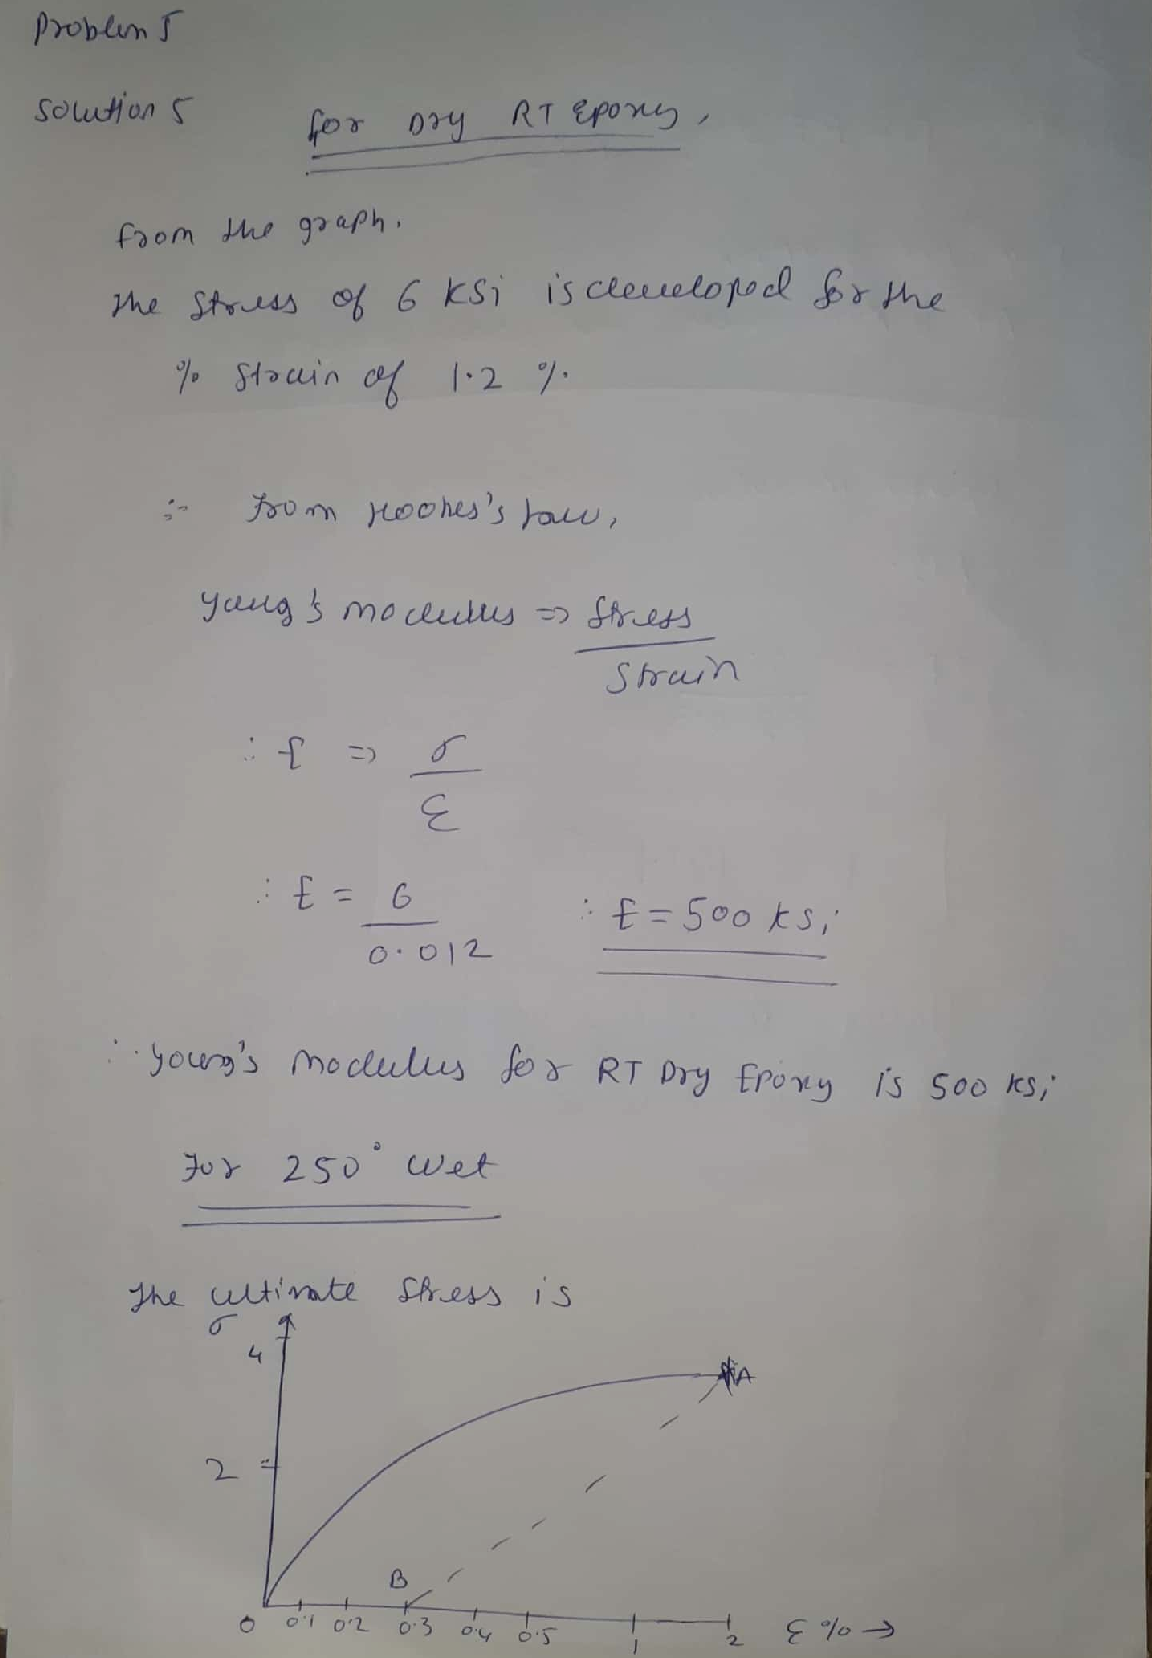 Problem 5
Solution 5
for Dry RT Epoxy,
from the graph.
The Stress of 6 ksi is developed for the
% Strain of 1.2 %.
∴ From Hookes's law,
Young's modulus ⇒ Stress
Strain
∴ E ⇒ σ
ε
∴ E = 6
0.012
∴ E = 500 ksi
∴ Young's Modulus for RT Dry Epoxy is 500 ksi
For 250° Wet
The ultimate Stress is
σ
4
A
2
B
0 0.1 0.2 0.3 0.4 0.5 1 2 ε % →